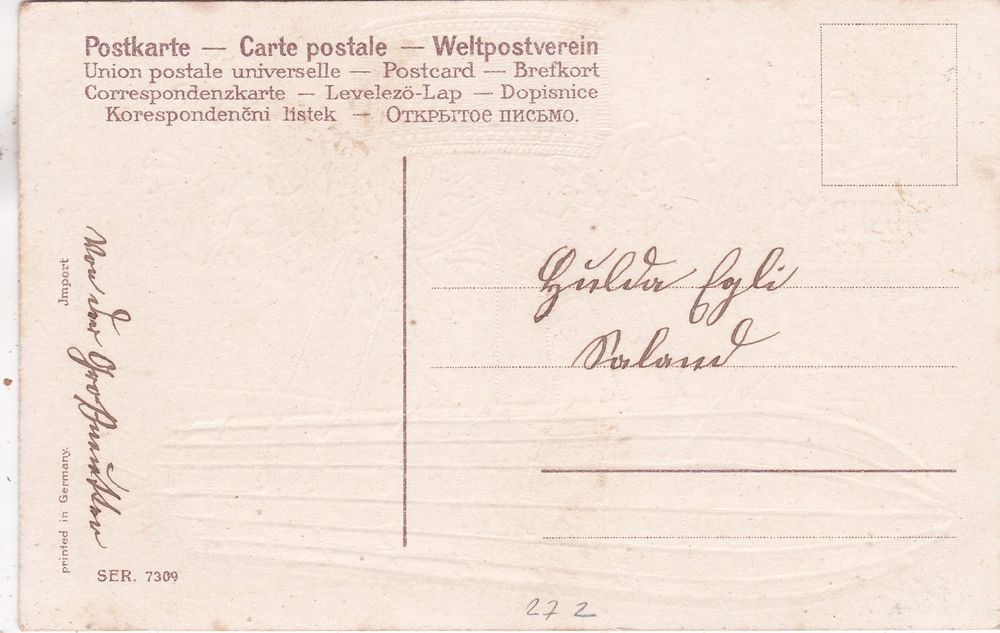 Postkarte — Carte postale — Weltpostverein
Union postale universelle — Postcard — Brefkort
Correspondenzkarte — Levelező-Lap — Dopisnice
Korespondenční lístek — Открытое письмо.
Hulda Egli
Saland
Von der Großmutter
Jmport
printed in Germany.
SER. 7309
27 2